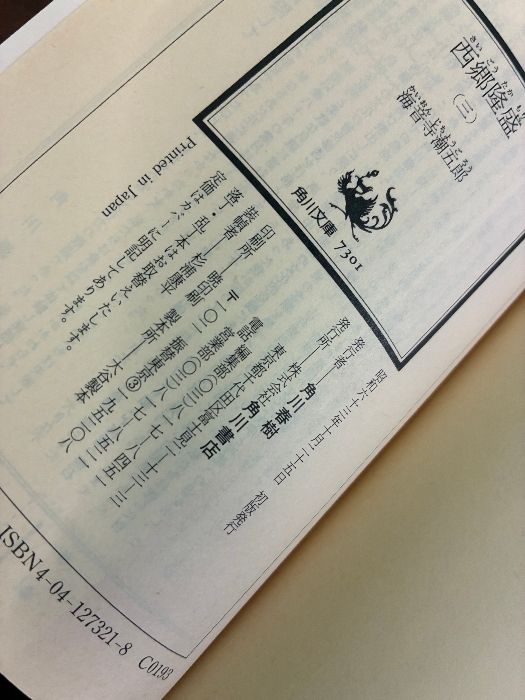 西郷隆盛
さいごうたかもり
（三）
海音寺潮五郎
かいおんじちょうごろう
角川文庫 7301
昭和六十三年十月二十五日 初版発行
発行者──角川春樹
発行所──株式会社 角川書店
東京都千代田区富士見二─十三─三
電話 編集部(〇三)八一七─八四五一
営業部(〇三)八一七─八五二一
〒一〇二 振替東京③一九五二〇八
印刷所──暁印刷 製本所──大谷製本
装幀者──杉浦康平
落丁・乱丁本はお取替えいたします。
定価はカバーに明記してあります。
Printed in Japan
ISBN4-04-127321-8 C0193